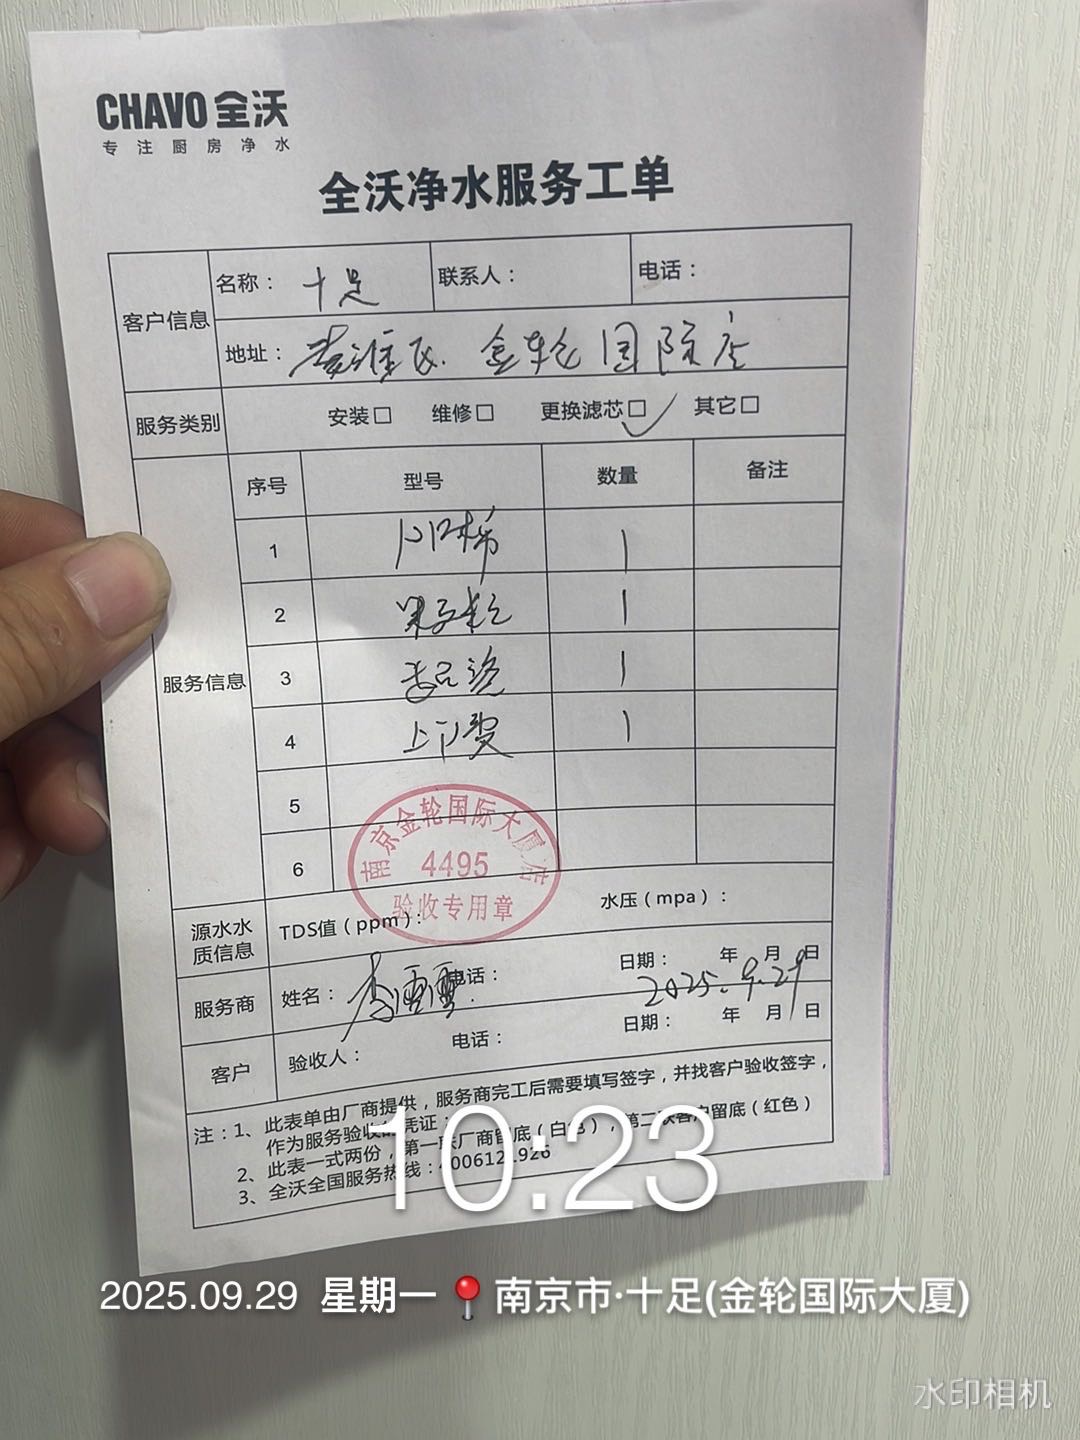 CHAVO 全沃
专注厨房净水
全沃净水服务工单
客户信息
名称： 十足 联系人： 电话：
地址： 秦淮区. 金轮国际店
服务类别 安装□ 维修□ 更换滤芯□ 其它□
服务信息
序号 型号 数量 备注
1 1
2 1
3 1
4 上门费 1
5
6
南京金轮国际大厦店
4495
验收专用章
源水水质信息 TDS值（ppm）： 水压（mpa）：
服务商 姓名： 李 电话： 日期： 年 月 日
2025.9.29
客户 验收人： 电话： 日期： 年 月 日
注：1、此表单由厂商提供，服务商完工后需要填写签字，并找客户验收签字，
作为服务验收的凭证；
2、此表一式两份，第一联厂商留底（白色），第二联客户留底（红色）
3、全沃全国服务热线：4006121926
10:23
2025.09.29 星期一 南京市·十足(金轮国际大厦)
水印相机